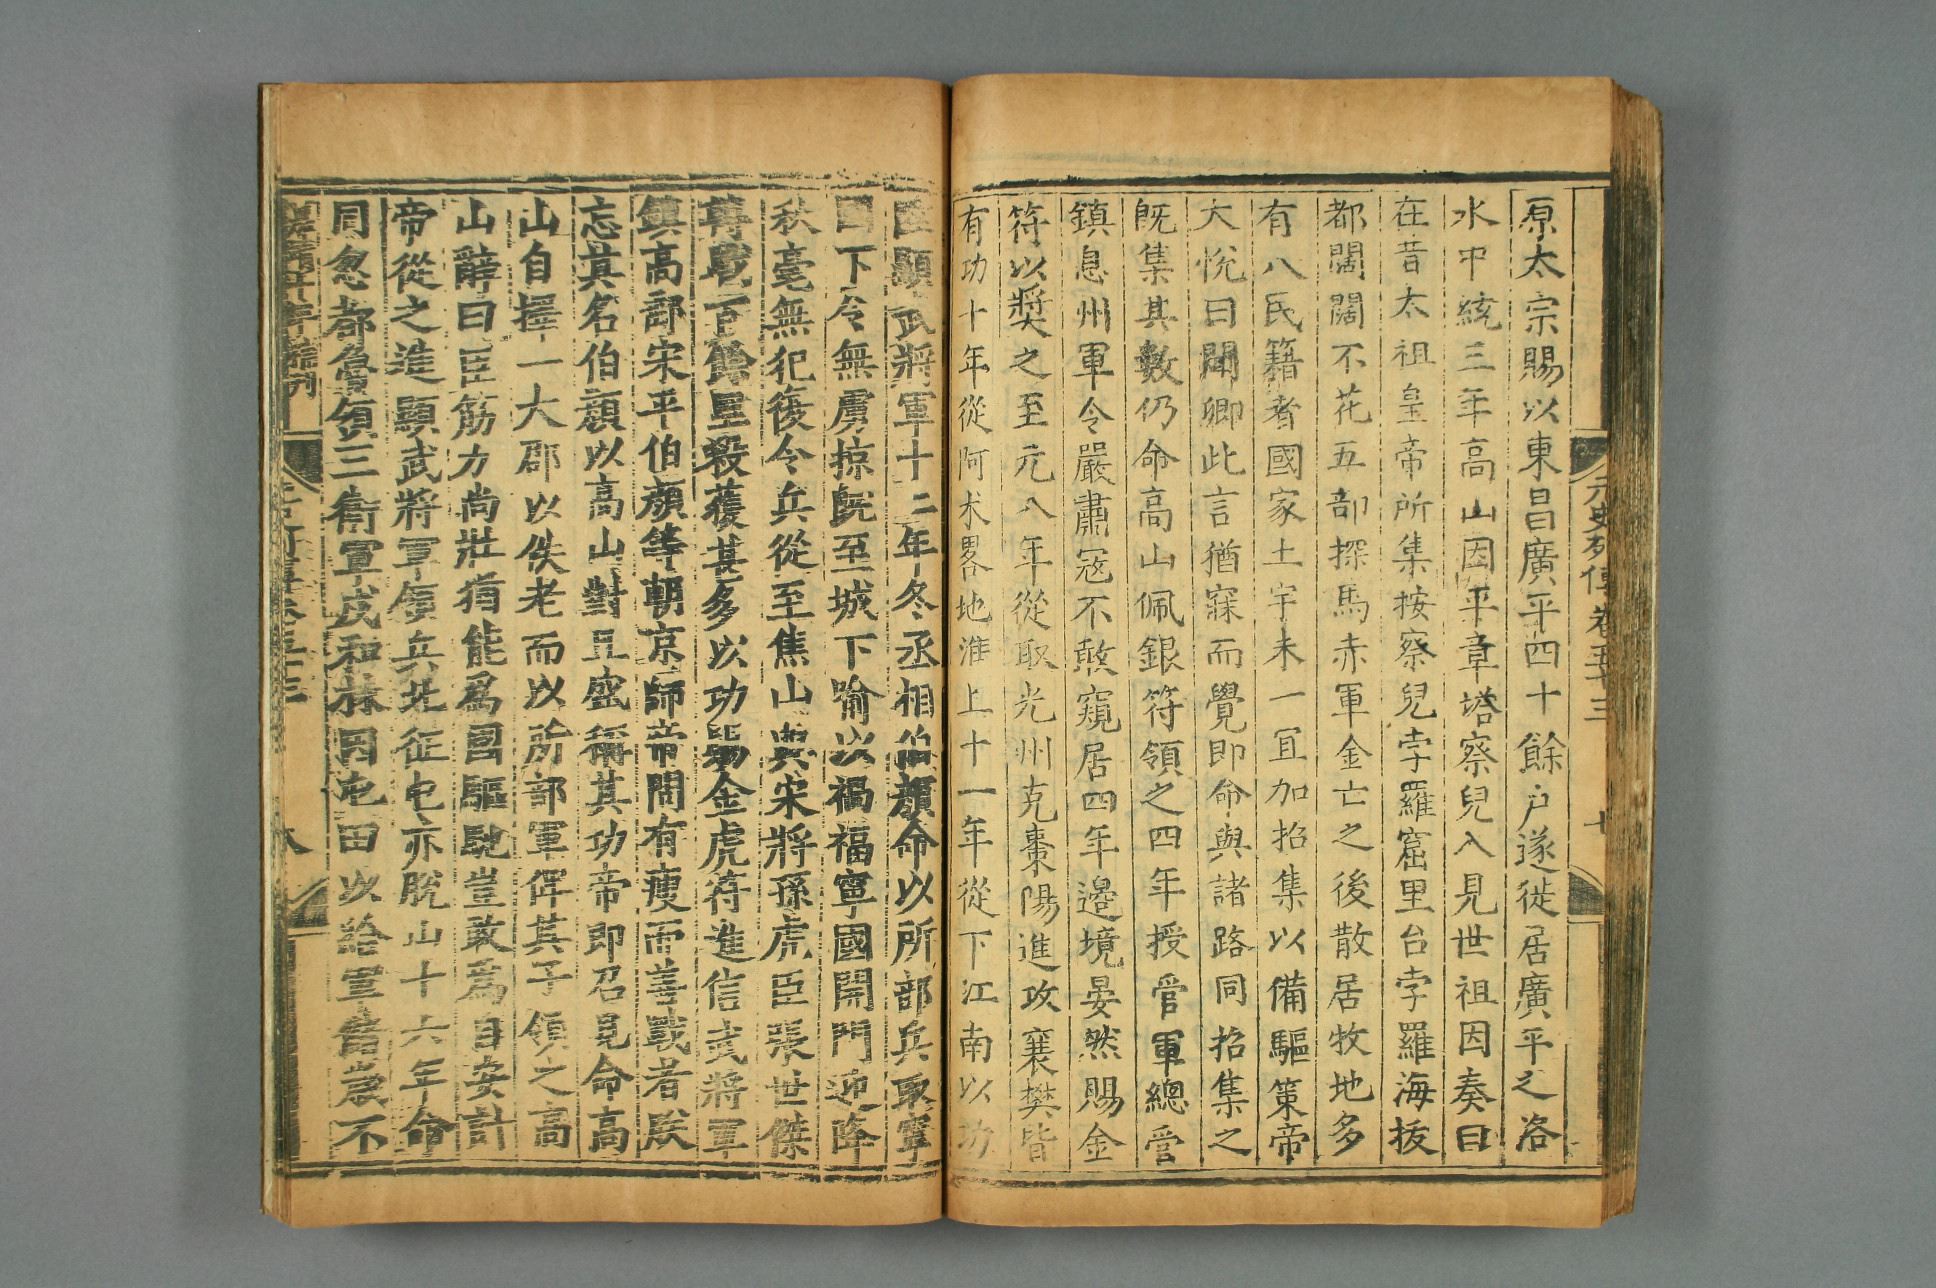 元史列傳卷五十三
七
原太宗賜以東昌廣平四十餘户遂徙居廣平之洺
水中統三年高山因平章塔察兒入見世祖因奏曰
在昔太祖皇帝所集按察兒孛羅窟里台孛羅海拔
都闊闊不花五部探馬赤軍金亡之後散居牧地多
有八民籍者國家土宇未一宜加招集以備驅策帝
大悅曰聞卿此言猶寐而覺即命與諸路同招集之
既集其數仍命高山佩銀符領之四年授管軍總管
鎮息州軍令嚴肅寇不敢窺居四年邊境晏然賜金
符以奬之至元八年從取光州克棗陽進攻襄樊皆
有功十年從阿术畧地淮上十一年從下江南以功
顯武將軍十二年冬丞相伯顏命以所部兵取寧
國下令無虜掠既至城下喻以禍福寧國開門迎降
秋毫無犯復令兵從至焦山與宋將孫虎臣張世傑
轉戰百餘里殺獲甚多以功賜金虎符進信武將軍
鎮高郵宋平伯顏等朝京師帝問有瘦而善戰者朕
忘其名伯顏以高山對且盛稱其功帝即召見命高
山自擇一大郡以佚老而以所部軍俾其子領之高
山辭曰臣筋力尚壯猶能爲國驅馳豈敢爲自安計
帝從之進顯武將軍領兵北征屯亦脫山十六年命
同忽都魯領三衛軍戍和林因屯田以給軍儲歲不
八